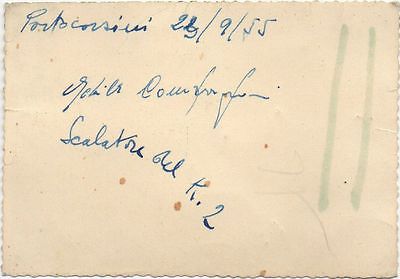 Portocorsini 22/9/55
Achille Compagnoni
Scalatore del K. 2